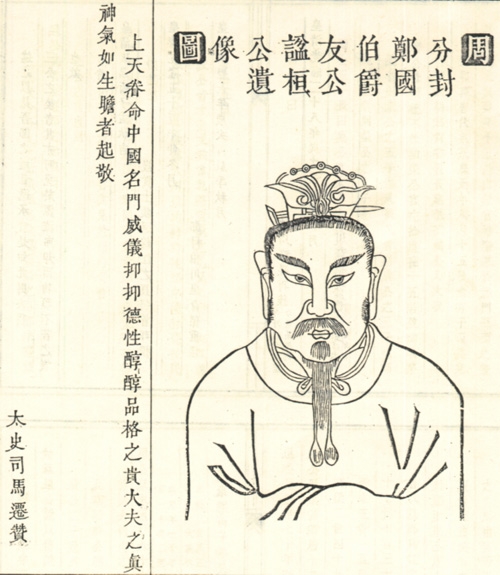 周
分封
鄭國
伯爵
友公
諡桓
公遺
像
圖
上天眷命中國名門威儀抑抑德性醇醇品格之貴大夫之眞
神氣如生瞻者起敬
太史司馬遷贊